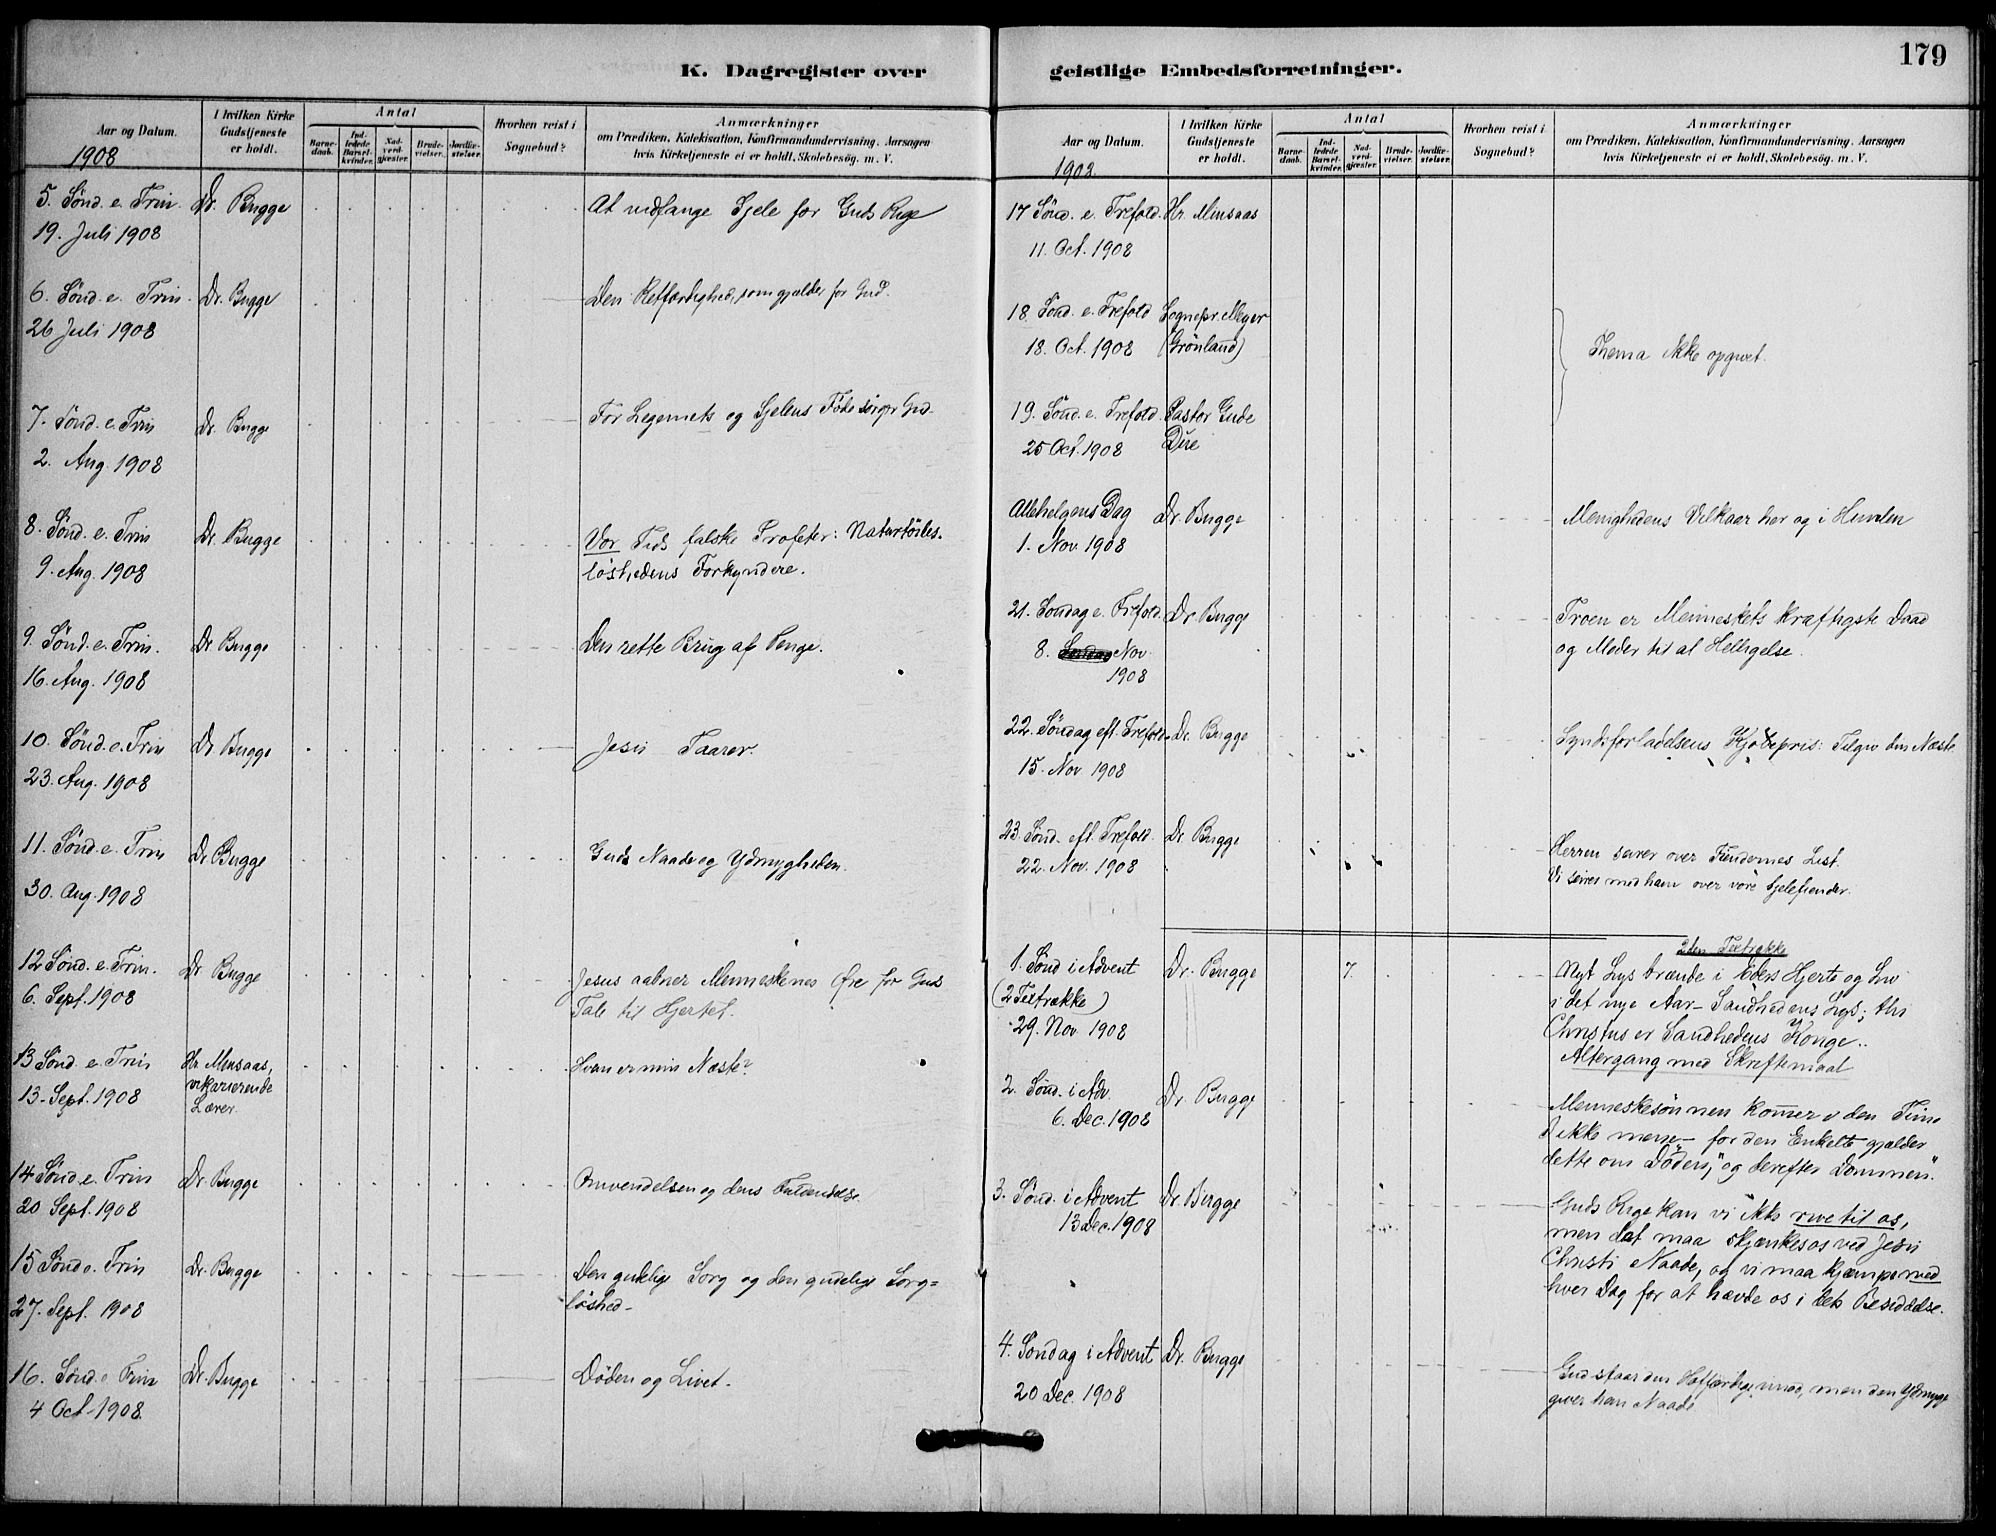 179
K. Dagregister over geistlige Embedsforretninger.
Aar og Datum.
1908
I hvilken Kirke
Gudstjeneste
er holdt.
Antal
Barne-
daab.
Ind-
ledede
Barsel-
kvinder.
Nad-
verd-
gjæster.
Brude-
vielser.
Jordfæ-
stelser.
Hvorhen reist i
Sognebud?
Anmærkninger
om Prædiken, Katekisation, Konfirmandundervisning, Aarsagen
hvis Kirketjeneste ei er holdt, Skolebesög. m. V.
5. Sønd. e. Trin. Dr. Bugge At indfange Sjele for Guds Rige
19. Juli 1908
6. Sønd. e. Trin. Dr. Bugge Den Retfærdighed, som gjælder for Gud.
26 Juli 1908
7. Sønd. e. Trin Dr. Bugge For Legemets og Sjelens Føde sørger Gud.
2. Aug. 1908
8. Sønd. e. Trin Dr. Bugge Vor Tids falske Profeter: Naturtöiles-
9. Aug. 1908 løshedens Forkyndere.
9. Sønd. e. Trin. Dr. Bugge Den rette Brug af Penge.
16. Aug. 1908
10. Sønd. e. Trin Dr Bugge Jesu Taarer
23. Aug. 1908
11. Sønd. e. Trin Dr Bugge Guds Naade og Ydmygheden.
30. Aug. 1908
12 Sønd. e. Trin. Dr Bugge Jesus aabner Menneskenes Øre for Guds
6. Sept. 1908 Tale til Hjertet.
13 Sønd. e. Trin Hr Minsaas, Hvem er min Næste?
13. Sept. 1908 vikarierende
Lærer.
14 Sønd. e. Trin Dr. Bugge Omvendelsen og dens
20 Sept. 1908
15 Sønd e. Trin Dr. Bugge Den gudelige Sorg og den gudelige Sorg=
27. Sept. 1908 løshed-
16. Sønd. e Trin Dr. Bugge Døden og Livet.
4 Oct. 1908.
Aar og Datum.
1908.
I hvilken Kirke
Gudstjeneste
er holdt.
Antal
Barne-
daab.
Ind-
ledede
Barsel-
kvinder.
Nad-
verd-
gjæster.
Brude-
vielser.
Jordfæ-
stelser.
Hvorhen reist i
Sognebud?
Anmærkninger
om Prædiken, Katekisation, Konfirmandundervisning, Aarsagen
hvis Kirketjeneste ei er holdt, Skolebesög. m. V.
17 Sønd. e. Trefold. Hr. Minsaas
11. Oct. 1908
18. Sønd. e. Trefold Sognepr. Meyer
18. Oct. 1908 (Grönland)
Thema ikke opgivet.
19. Sønd. e. Trefold. Pastor Gude
25 Oct. 1908 Due
Allehelgens Dag Dr. Bugge Menighedens Vilkaar her og i Himlen
1. Nov. 1908
21. Søndag e. Trefold. Dr Bugge Troen er Menneskets kraftigste Daad
8. Nov. og Moder til al Helligelse.
1908
22. Søndag eft. Trefold. Dr. Bugge Syndsforladelsens Kjøbepris: Tilgiv din Næste
15. Nov 1908
23. Sønd. eft. Trefold. Dr. Bugge Herren seirer over Fiendernes List.
22. Nov. 1908 Vi seirer med ham over vore Sjelefiender.
2den Textrække
1. Sønd i Advent Dr. Bugge 7. Nyt Lys brænde i Eders Hjerte og Liv
(2 Textrække) i det nye Aar - Sandhedens Lys; thi
29. Nov 1908 Christus er Sandhedens Konge.
Altergang med Skriftemaal
2. Sønd. i Adv. Dr. Bugge Menneskesønnen kommer i den Time
6. Dec. 1908 I ikke mene - for den Enkelte gjælder
dette om Døden, "og derefter Dommen".
3. Sønd. i Advent Dr. Bugge Guds Rige kan vi ikke rive til os,
13 Dec. 1908 men det maa skjænkes os ved Jesu
Christi Naade, og vi maa kjæmpe med
hver Dag for at hævde os i dets Besiddelse.
4. Søndag i Advent Dr. Bugge Gud staar den Hoffærdige imod, men den Ydmyge
20 Dec. 1908 giver han Naade